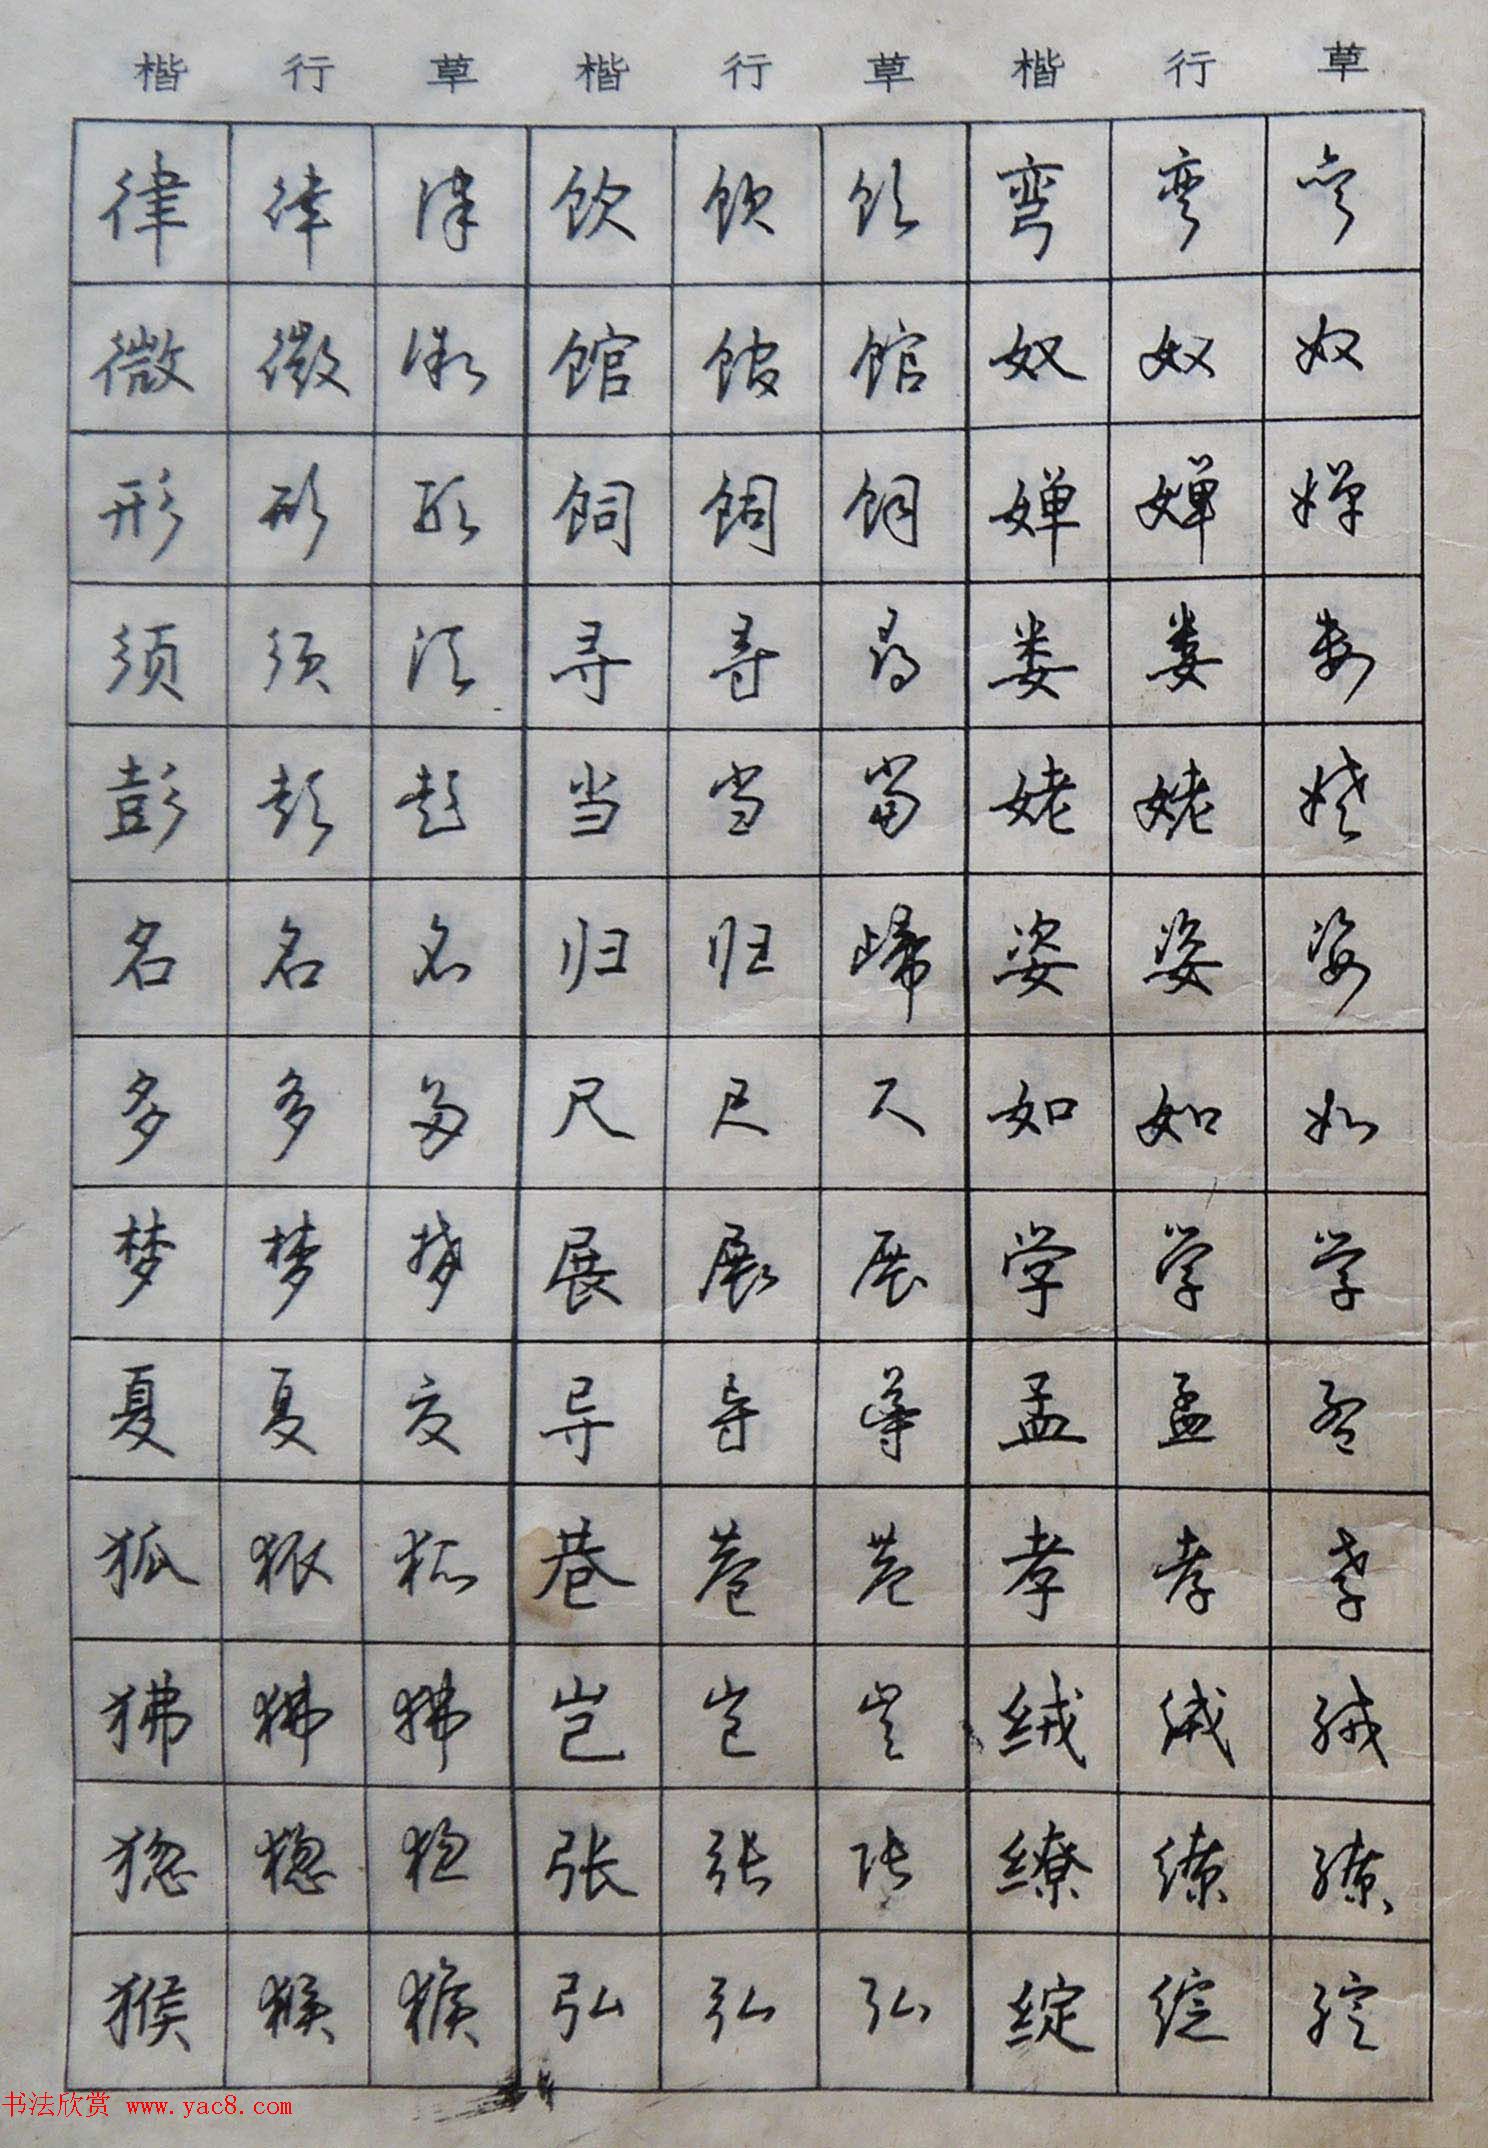 楷 行 草 楷 行 草 楷 行 草
律 律 律 饮 饮 饮 弯 弯 弯
微 微 微 馆 馆 馆 奴 奴 奴
形 形 形 饲 饲 饲 婵 婵 婵
须 须 须 寻 寻 寻 娄 娄 娄
彭 彭 彭 当 当 當 姥 姥 姥
名 名 名 归 归 歸 姿 姿 姿
多 多 多 尺 尺 尺 如 如 如
梦 梦 梦 展 展 展 学 学 学
夏 夏 夏 导 导 導 孟 孟 孟
狐 狐 狐 巷 巷 巷 孝 孝 孝
狒 狒 狒 岂 岂 岂 绒 绒 绒
猕 张 张 张 缭 缭 缭
猴 猴 猴 弘 弘 弘 绽 绽 绽
书法欣赏 www.yac8.com